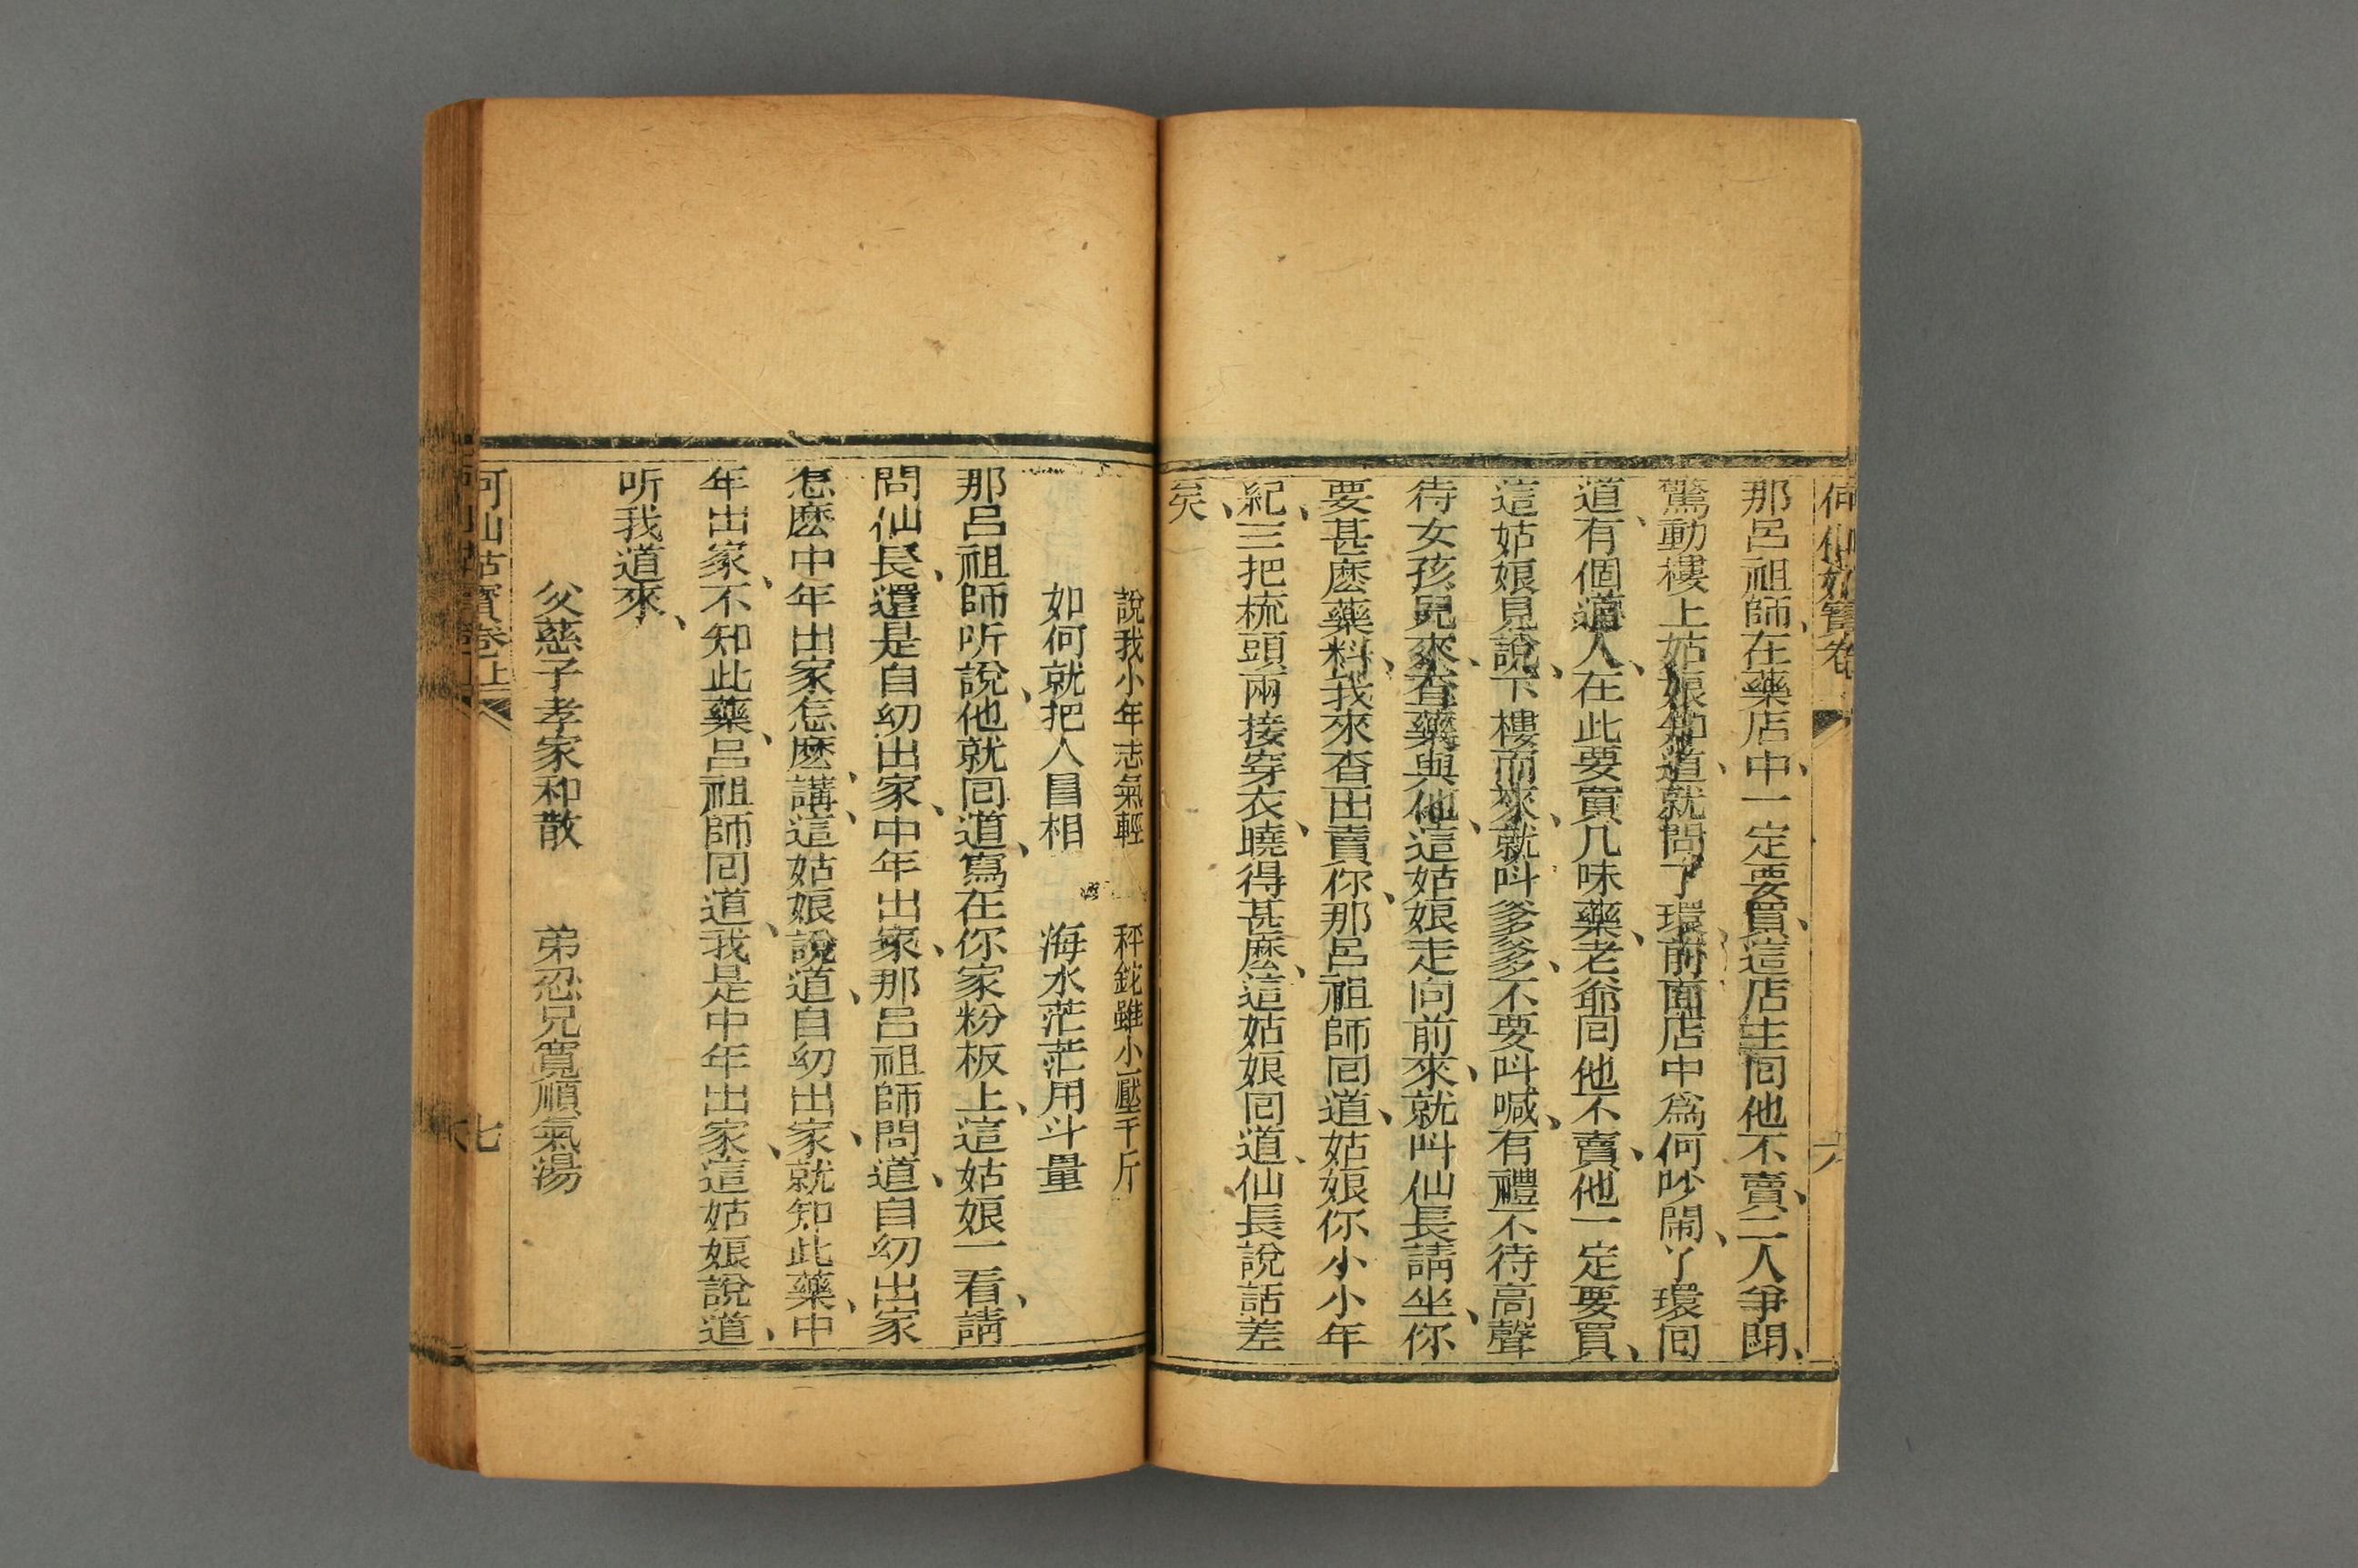 何仙姑寶卷
六
那呂祖師、在藥店中、一定要買、這店主囘他不賣、二人爭閗、
驚動樓上姑娘知道、就問了環、前面店中爲何吵鬧、了環囘
道、有個道人、在此要買几味藥、老爺囘他不賣、他一定要買、
這姑娘見說、下樓而來、就呌爹爹、不要呌喊、有禮不待高聲
待女孩兒來、查藥與他、這姑娘走向前來、就呌仙長請坐、你
要甚麽藥料、我來查出賣你、那呂祖師囘道、姑娘你小小年
紀、三把梳頭兩接穿衣、曉得甚麽、這姑娘囘道、仙長說話差
矣、
說我小年志氣輕　秤鉈雖小壓千斤
如何就把人冒相　海水茫茫用斗量
那呂祖師听說、他就囘道、寫在你家粉板上、這姑娘一看、請
問仙長、還是自幼出家、中年出家、那呂祖師問道、自幼出家
怎麽中年出家怎麽講、這姑娘說道、自幼出家、就知此藥、中
年出家、不知此藥、呂祖師囘道、我是中年出家、這姑娘說道、
听我道來、
父慈子孝家和散　弟忍兄寬順氣湯
何仙姑寶卷上
七